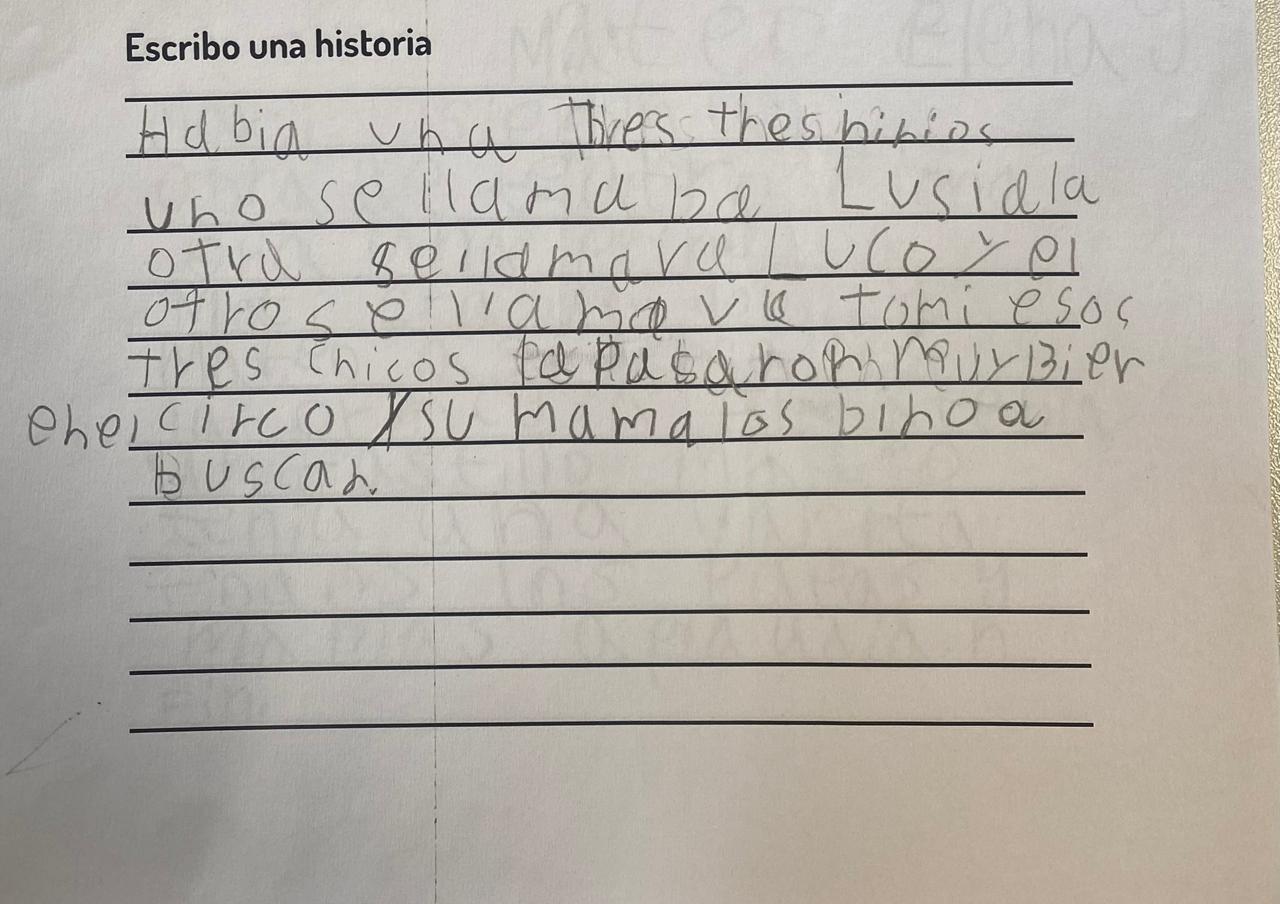 Escribo una historia
Habia una Tres tres ninios
uno se llamaba Lusiala
otra sellamava Luco y el
otro se llamava tomi esos
tres chicos la pasarom muy Bien
enel circo y su mama los bino a
buscar.